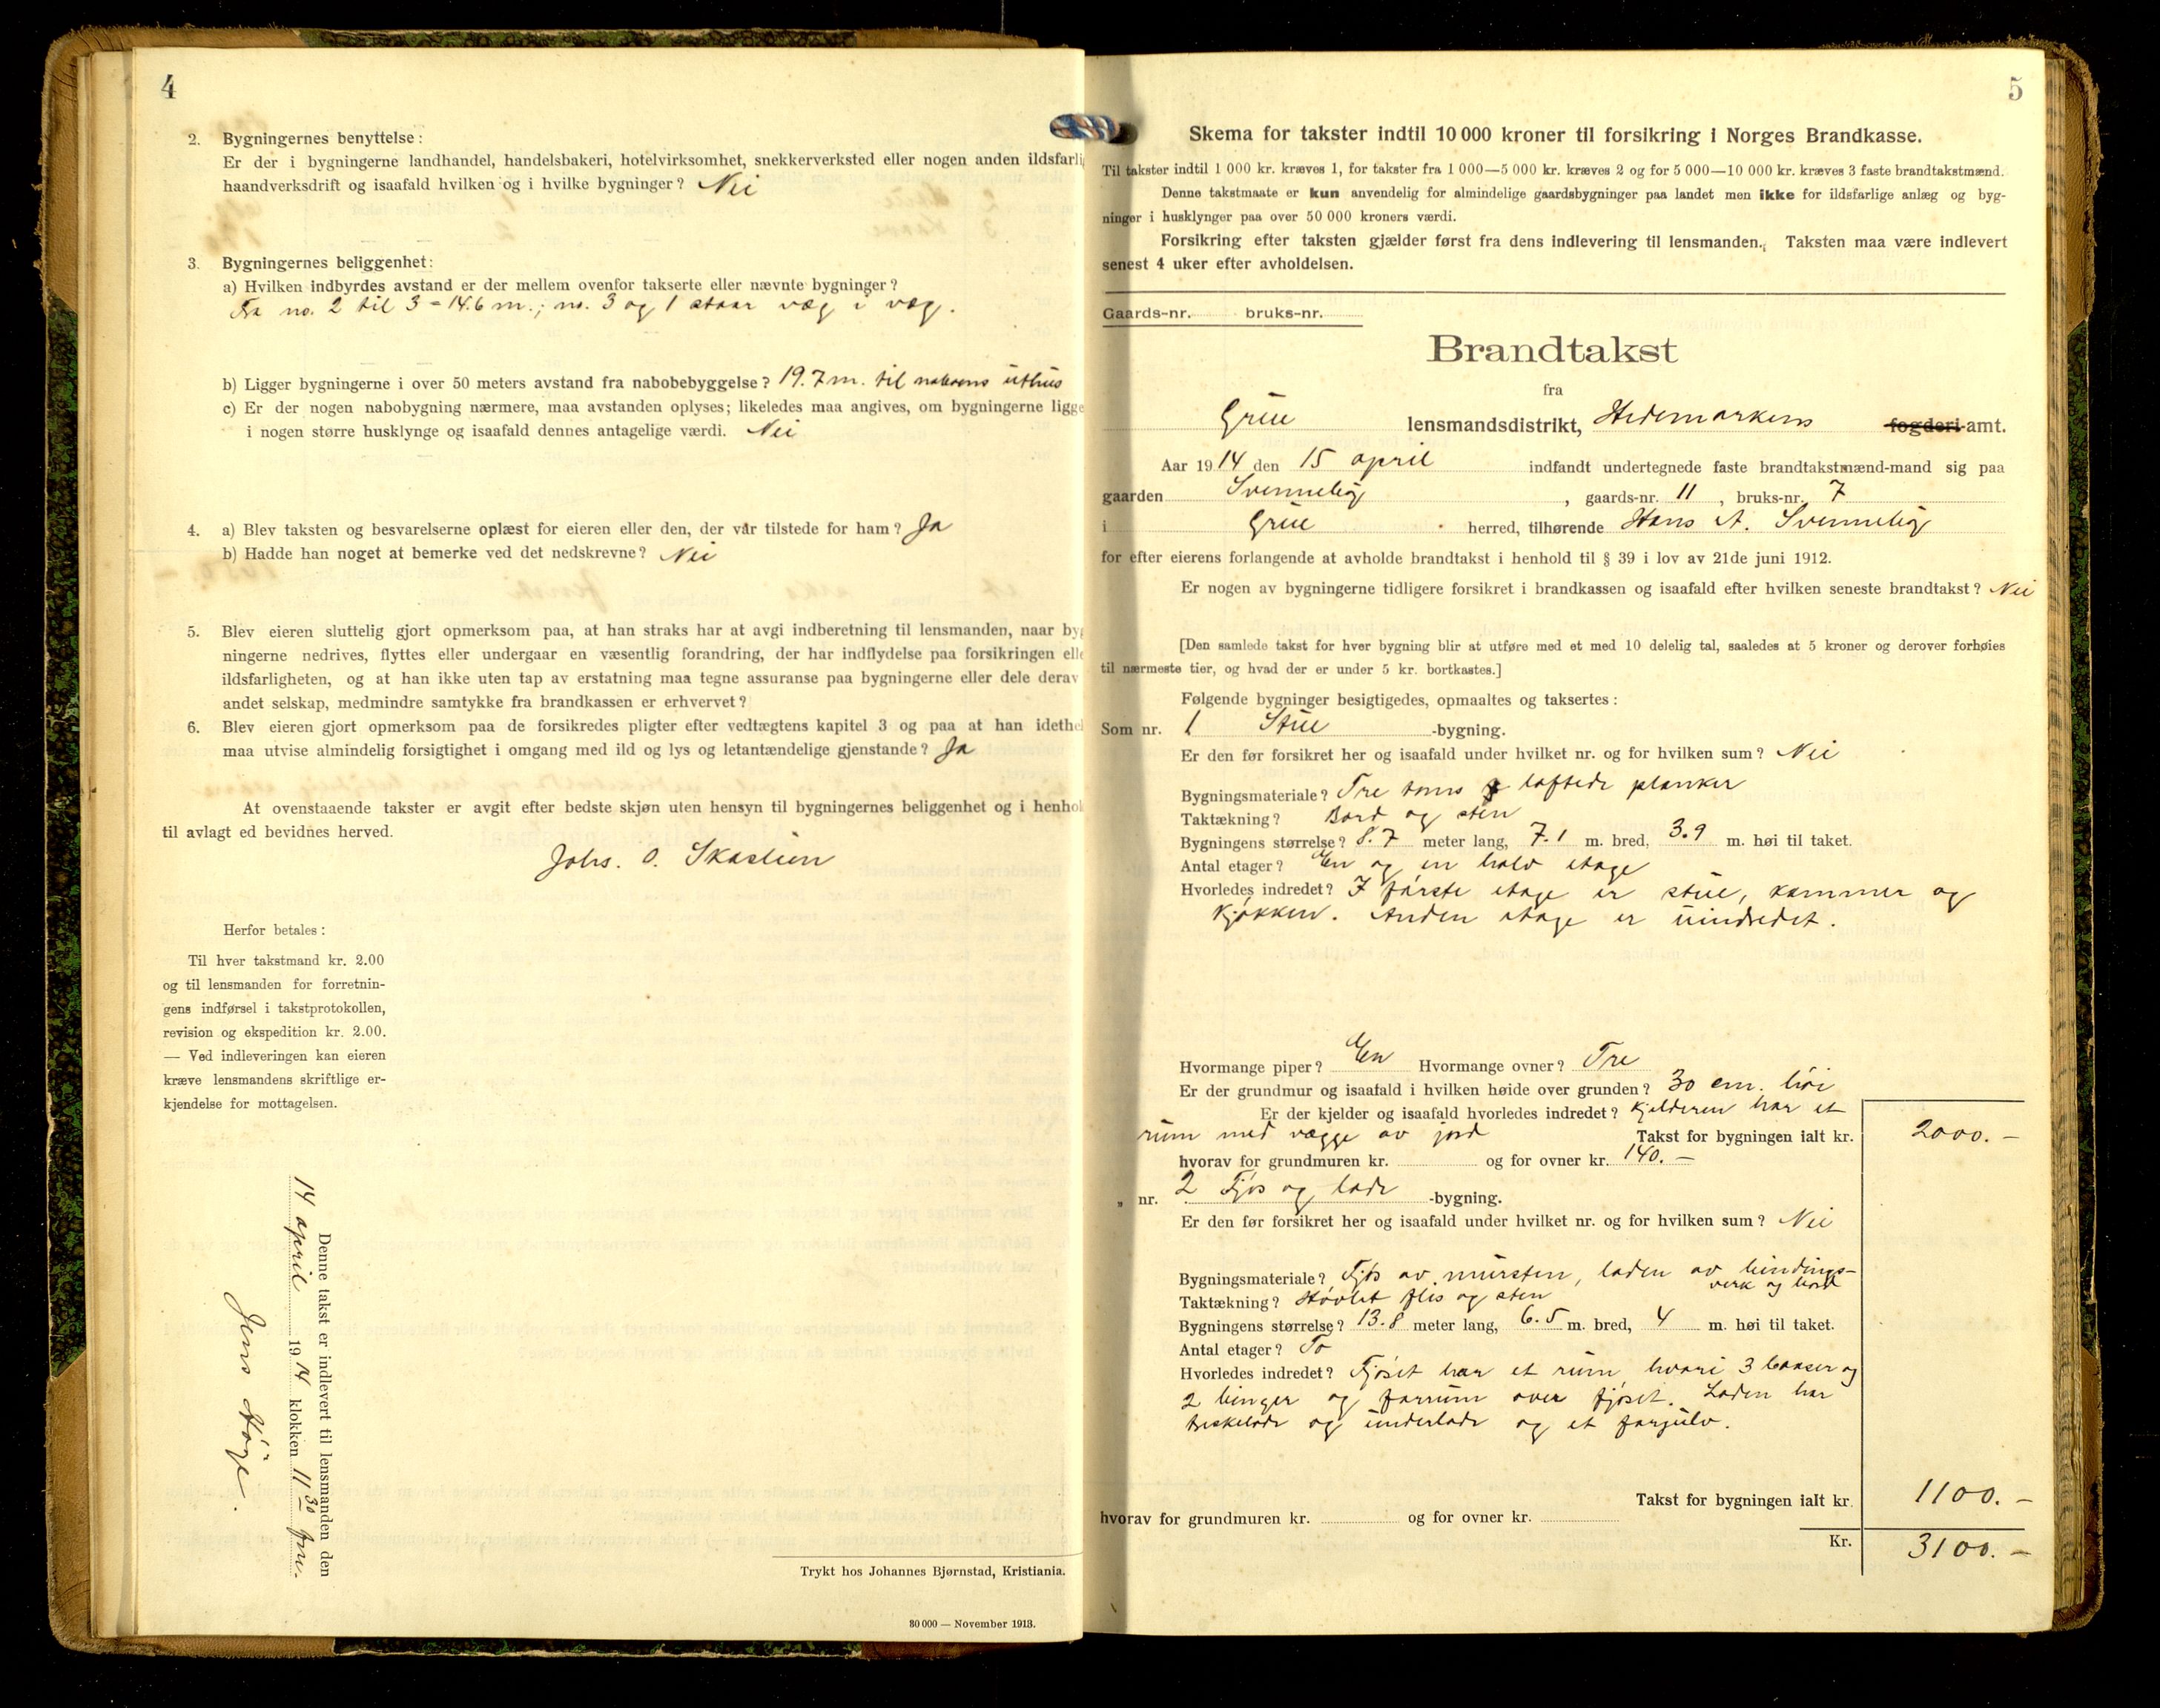 4
2. Bygningernes benyttelse:
Er der i bygningerne landhandel, handelsbakeri, hotelvirksomhet, snekkerverksted eller nogen anden ildsfarli
haandverksdrift og isaafald hvilken og i hvilke bygninger? Nei
3. Bygningernes beliggenhet:
a) Hvilken indbyrdes avstand er der mellem ovenfor takserte eller nævnte bygninger?
Fra no. 2 til 3 = 14.6 m.; no. 3 og 1 staar væg i væg.
b) Ligger bygningerne i over 50 meters avstand fra nabobebyggelse? 19.7 m. til naboens uthus
c) Er der nogen nabobygning nærmere, maa avstanden oplyses; likeledes maa angives, om bygningerne ligge
i nogen større husklynge og isaafald dennes antagelige værdi. Nei
4. a) Blev taksten og besvarelserne oplæst for eieren eller den, der var tilstede for ham? Ja
b) Hadde han noget at bemerke ved det nedskrevne? Nei
5. Blev eieren sluttelig gjort opmerksom paa, at han straks har at avgi indberetning til lensmanden, naar by
ningerne nedrives, flyttes eller undergaar en væsentlig forandring, der har indflydelse paa forsikringen elle
ildsfarligheten, og at han ikke uten tap av erstatning maa tegne assuranse paa bygningerne eller dele derav
andet selskap, medmindre samtykke fra brandkassen er erhvervet?
6. Blev eieren gjort opmerksom paa de forsikredes pligter efter vedtægtens kapitel 3 og paa at han idethe
maa utvise almindelig forsigtighet i omgang med ild og lys og letantændelige gjenstande? Ja
At ovenstaaende takster er avgit efter bedste skjøn uten hensyn til bygningernes beliggenhet og i henhol
til avlagt ed bevidnes herved.
Johs. O. Skaslien
Herfor betales:
Til hver takstmand kr. 2.00
og til lensmanden for forretnin-
gens indførsel i takstprotokollen,
revision og ekspedition kr. 2.00.
— Ved indleveringen kan eieren
kræve lensmandens skriftlige er-
kjendelse for mottagelsen.
Denne takst er indlevert til lensmanden den
14 april 1914 klokken 11 30 fm.
Jens
Trykt hos Johannes Bjørnstad, Kristiania.
30 000 — November 1913.
5
Skema for takster indtil 10 000 kroner til forsikring i Norges Brandkasse.
Til takster indtil 1 000 kr. kræves 1, for takster fra 1 000—5 000 kr. kræves 2 og for 5 000—10 000 kr. kræves 3 faste brandtakstmænd.
Denne takstmaate er kun anvendelig for almindelige gaardsbygninger paa landet men ikke for ildsfarlige anlæg og byg-
ninger i husklynger paa over 50 000 kroners værdi.
Forsikring efter taksten gjælder først fra dens indlevering til lensmanden. Taksten maa være indlevert
senest 4 uker efter avholdelsen.
Gaards-nr. bruks-nr.
Brandtakst
fra
Grue lensmandsdistrikt, Hedemarkens fogderi-amt.
Aar 1914 den 15 april indfandt undertegnede faste brandtakstmænd-mand sig paa
gaarden Svenneby, gaards-nr. 11, bruks-nr. 7
i Grue herred, tilhørende Hans A. Svenneby
for efter eierens forlangende at avholde brandtakst i henhold til § 39 i lov av 21de juni 1912.
Er nogen av bygningerne tidligere forsikret i brandkassen og isaafald efter hvilken seneste brandtakst? Nei
[Den samlede takst for hver bygning blir at utføre med et med 10 delelig tal, saaledes at 5 kroner og derover forhøies
til nærmeste tier, og hvad der er under 5 kr. bortkastes.]
Følgende bygninger besigtigedes, opmaaltes og taksertes:
Som nr. 1 Stue -bygning.
Er den før forsikret her og isaafald under hvilket nr. og for hvilken sum? Nei
Bygningsmateriale? Tre toms laftede planker
Taktækning? Bord og sten
Bygningens størrelse? 8.7 meter lang, 7.1 m. bred, 3.9 m. høi til taket.
Antal etager? En og en halv etage
Hvorledes indredet? I første etage er stue, kammer og
kjøkken. Anden etage er uindredet.
Hvormange piper? En Hvormange ovner? Tre
Er der grundmur og isaafald i hvilken høide over grunden? 30 cm. høi
Er der kjelder og isaafald hvorledes indredet? Kjelderen har et
rum med vægge av jord Takst for bygningen ialt kr. 2000.—
hvorav for grundmuren kr. og for ovner kr. 140.—
„ nr. 2 Fjøs og lade -bygning.
Er den før forsikret her og isaafald under hvilket nr. og for hvilken sum? Nei
Bygningsmateriale? Fjøs av mursten, laden av bindings-
verk og bord
Taktækning? Høvlet flis og sten
Bygningens størrelse? 13.8 meter lang, 6.5 m. bred, 4 m. høi til taket.
Antal etager? To
Hvorledes indredet? Fjøset har et rum, hvori 3 baaser og
2 binger og forrum over fjøset. Laden har
treskelade og underlade og et forgulv.
Takst for bygningen ialt kr. 1100.—
hvorav for grundmuren kr. og for ovner kr.
Kr. 3100.—